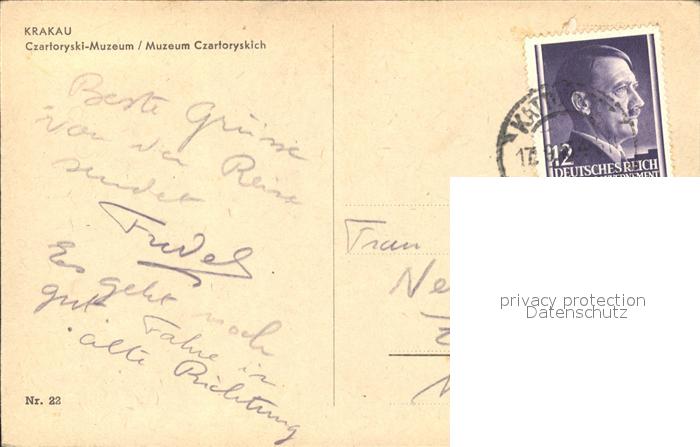 KRAKAU
Czartoryski-Muzeum / Muzeum Czartoryskich
Beste Grüsse
von der Reise
sendet
Es geht noch
gut Fahre in
alte Richtung
Nr. 22
12
DEUTSCHES REICH
Frau
privacy protection
Datenschutz